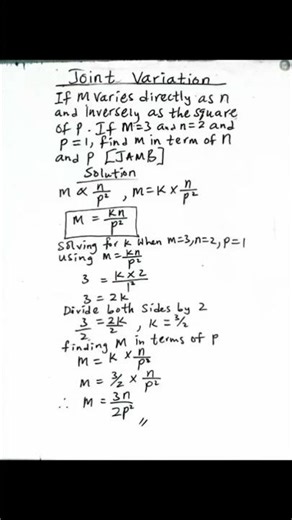 Joint Variation
If M varies directly as n
and Inversely as the square
of P. If M=3 and n=2 and
P=1, find M in term of n
and P [JAMB]
Solution
M ∝ n/P², M = K × n/P²
M = kn/P²
Solving for k when M=3, n=2, P=1
Using M = kn/P²
3 = K×2/1²
3 = 2K
Divide both Sides by 2
3/2 = 2K/2, K = 3/2
finding M in terms of P
M = K × n/P²
M = 3/2 × n/P²
∴ M = 3n/2P² //